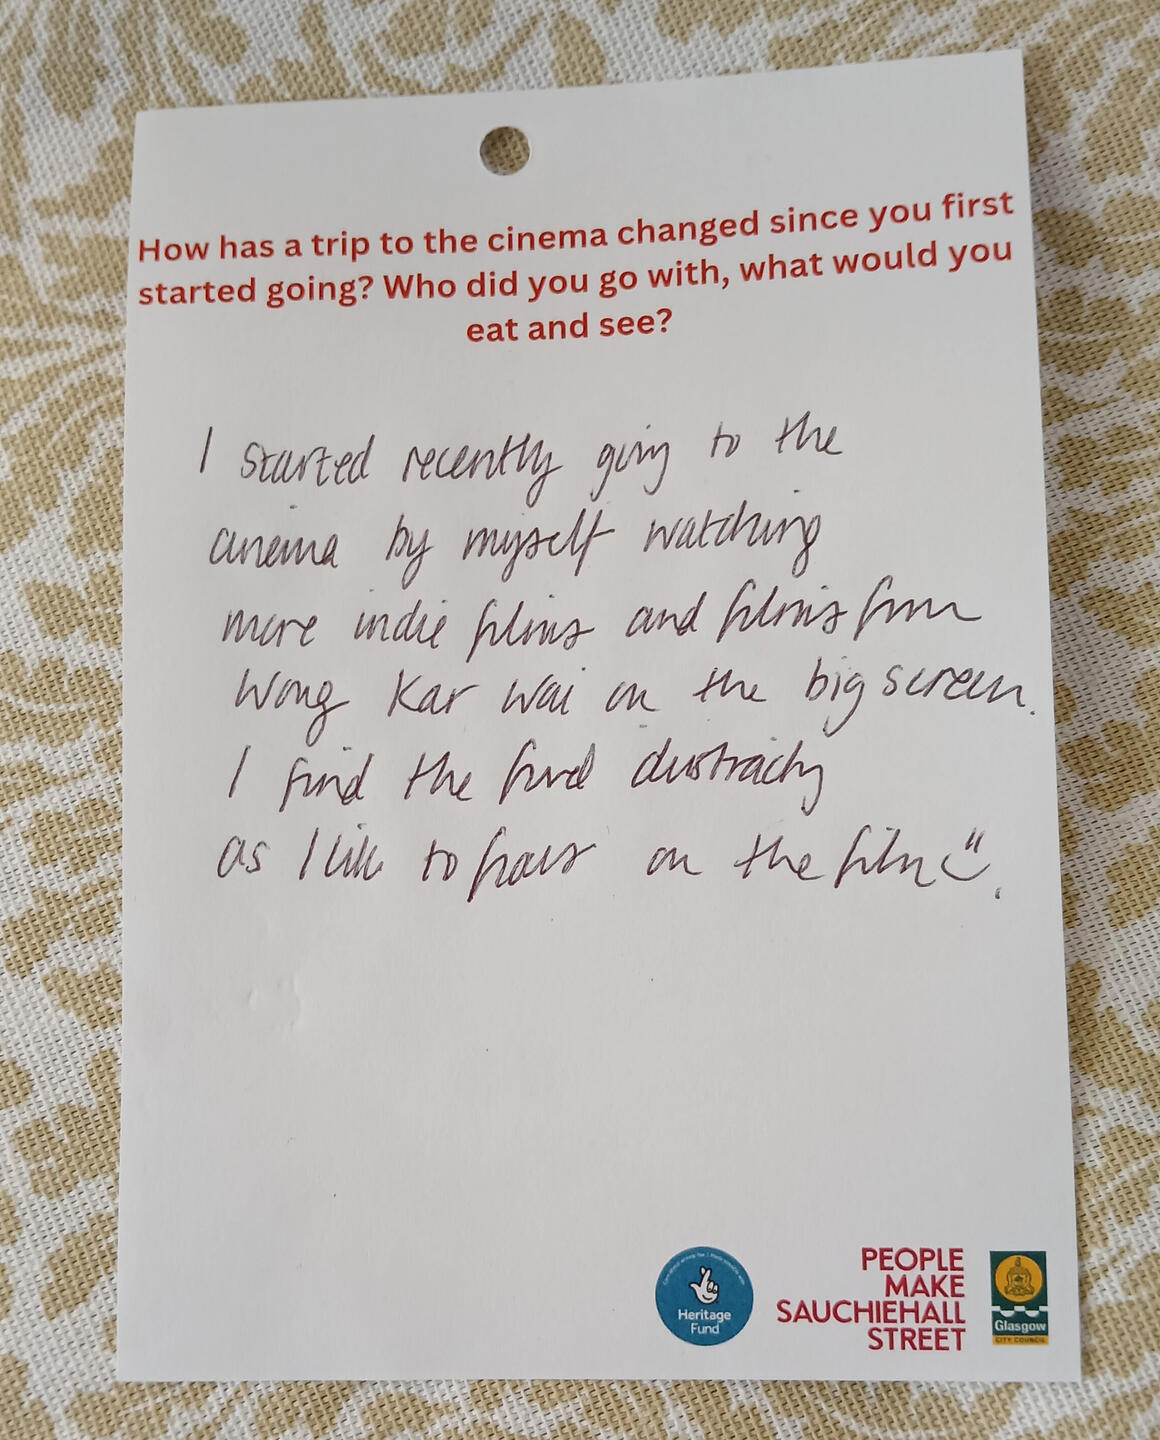 How has a trip to the cinema changed since you first
started going? Who did you go with, what would you
eat and see?
I started recently going to the
cinema by myself watching
more indie films and films from
Wong Kar Wai on the big screen.
I find the food distracting
as I like to focus on the film
Heritage
Fund
PEOPLE
MAKE
SAUCHIEHALL
STREET
Glasgow
CITY COUNCIL